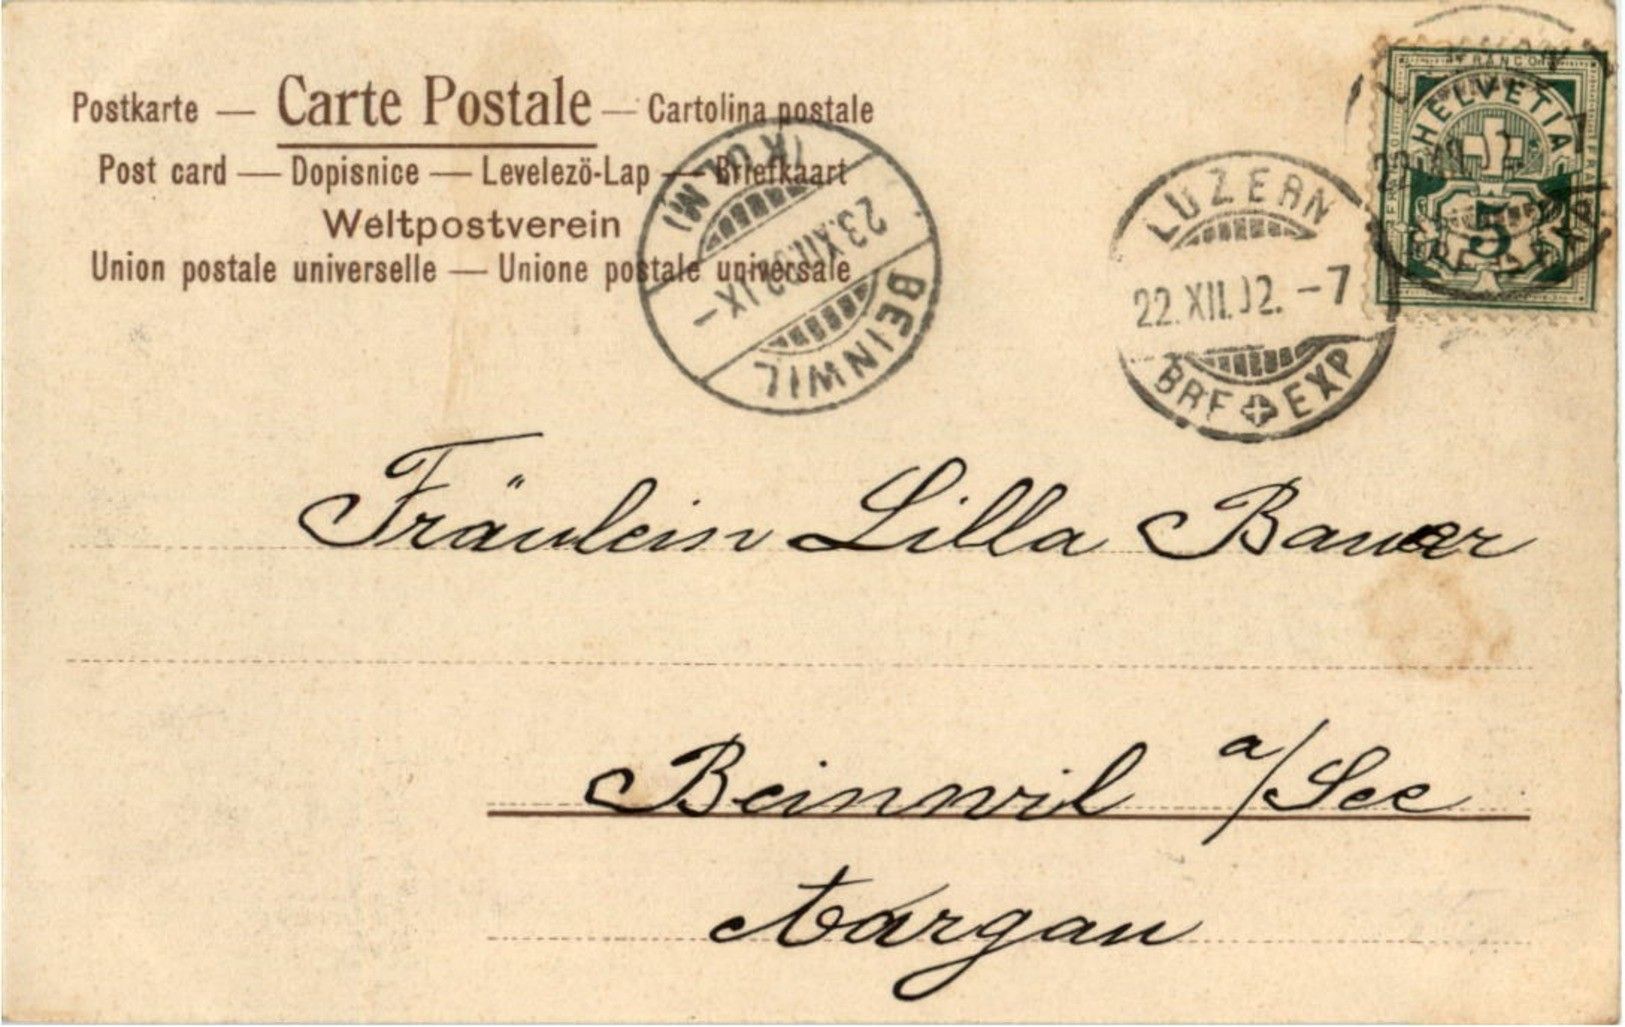 Postkarte — Carte Postale — Cartolina postale
Post card — Dopisnice — Levelezö-Lap — Briefkaart
Weltpostverein
Union postale universelle — Unione postale universale
FRANCO
HELVETIA
5
LUZERN
22.XII.02.-7
BRF EXP
BEINWIL
23.XII.02.IX-
(KULM)
Fräulein Lilla Bauer
Beinwil a/See
Aargau